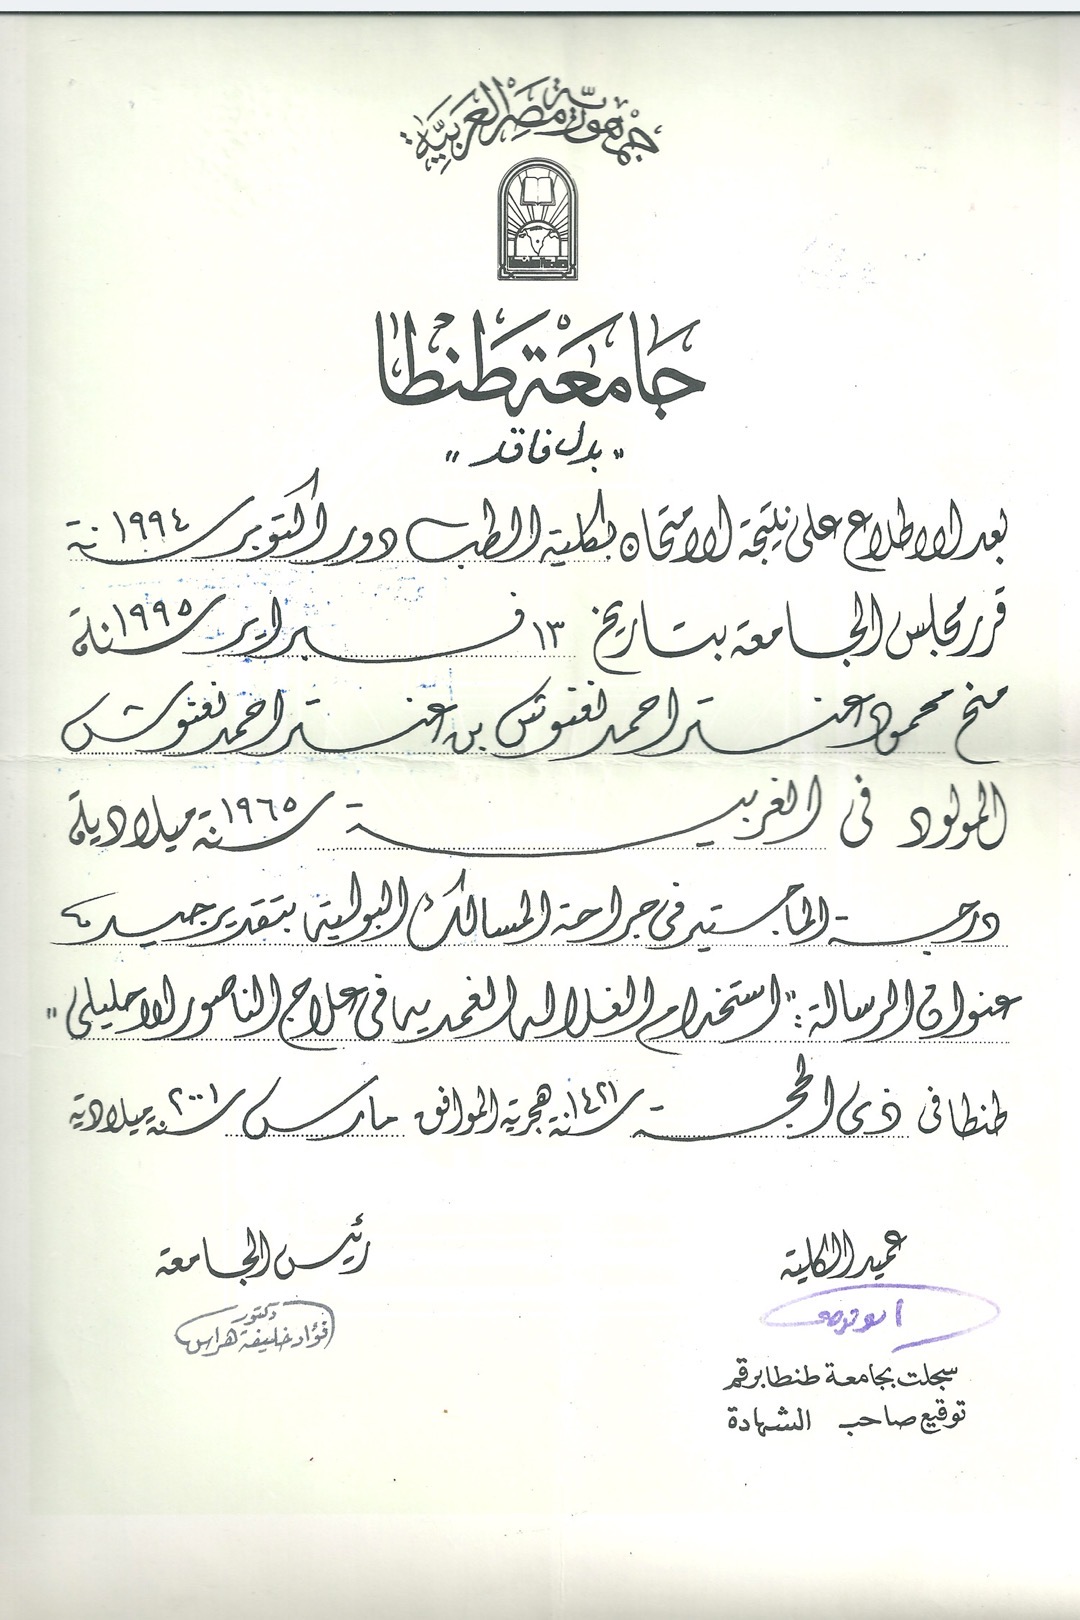 جمهورية مصر العربية
جامعة طنطا
"بدل فاقد"
بعد الاطلاع على نتيجة الامتحان لكلية الطب دور اكتوبر سنة ١٩٩٤
قرر مجلس الجامعة بتاريخ ١٣ فبراير سنة ١٩٩٥
منح محمود عنتر احمد نعنوش بن عنتر احمد نعنوش
المولود فى الغربية سنة ١٩٦٥ ميلادية
درجة الماجستير فى جراحة المسالك البولية بتقدير جيد
عنوان الرسالة: "استخدام الغلالة الغمدية فى علاج الناصور الاحليلى"
طنطا فى ذى الحجة سنة ١٤٢١ هجرية الموافق مارس سنة ٢٠٠١ ميلادية
عميد الكلية
رئيس الجامعة
دكتور
فؤاد خليفة هراس
سجلت بجامعة طنطا برقم
توقيع صاحب الشهادة